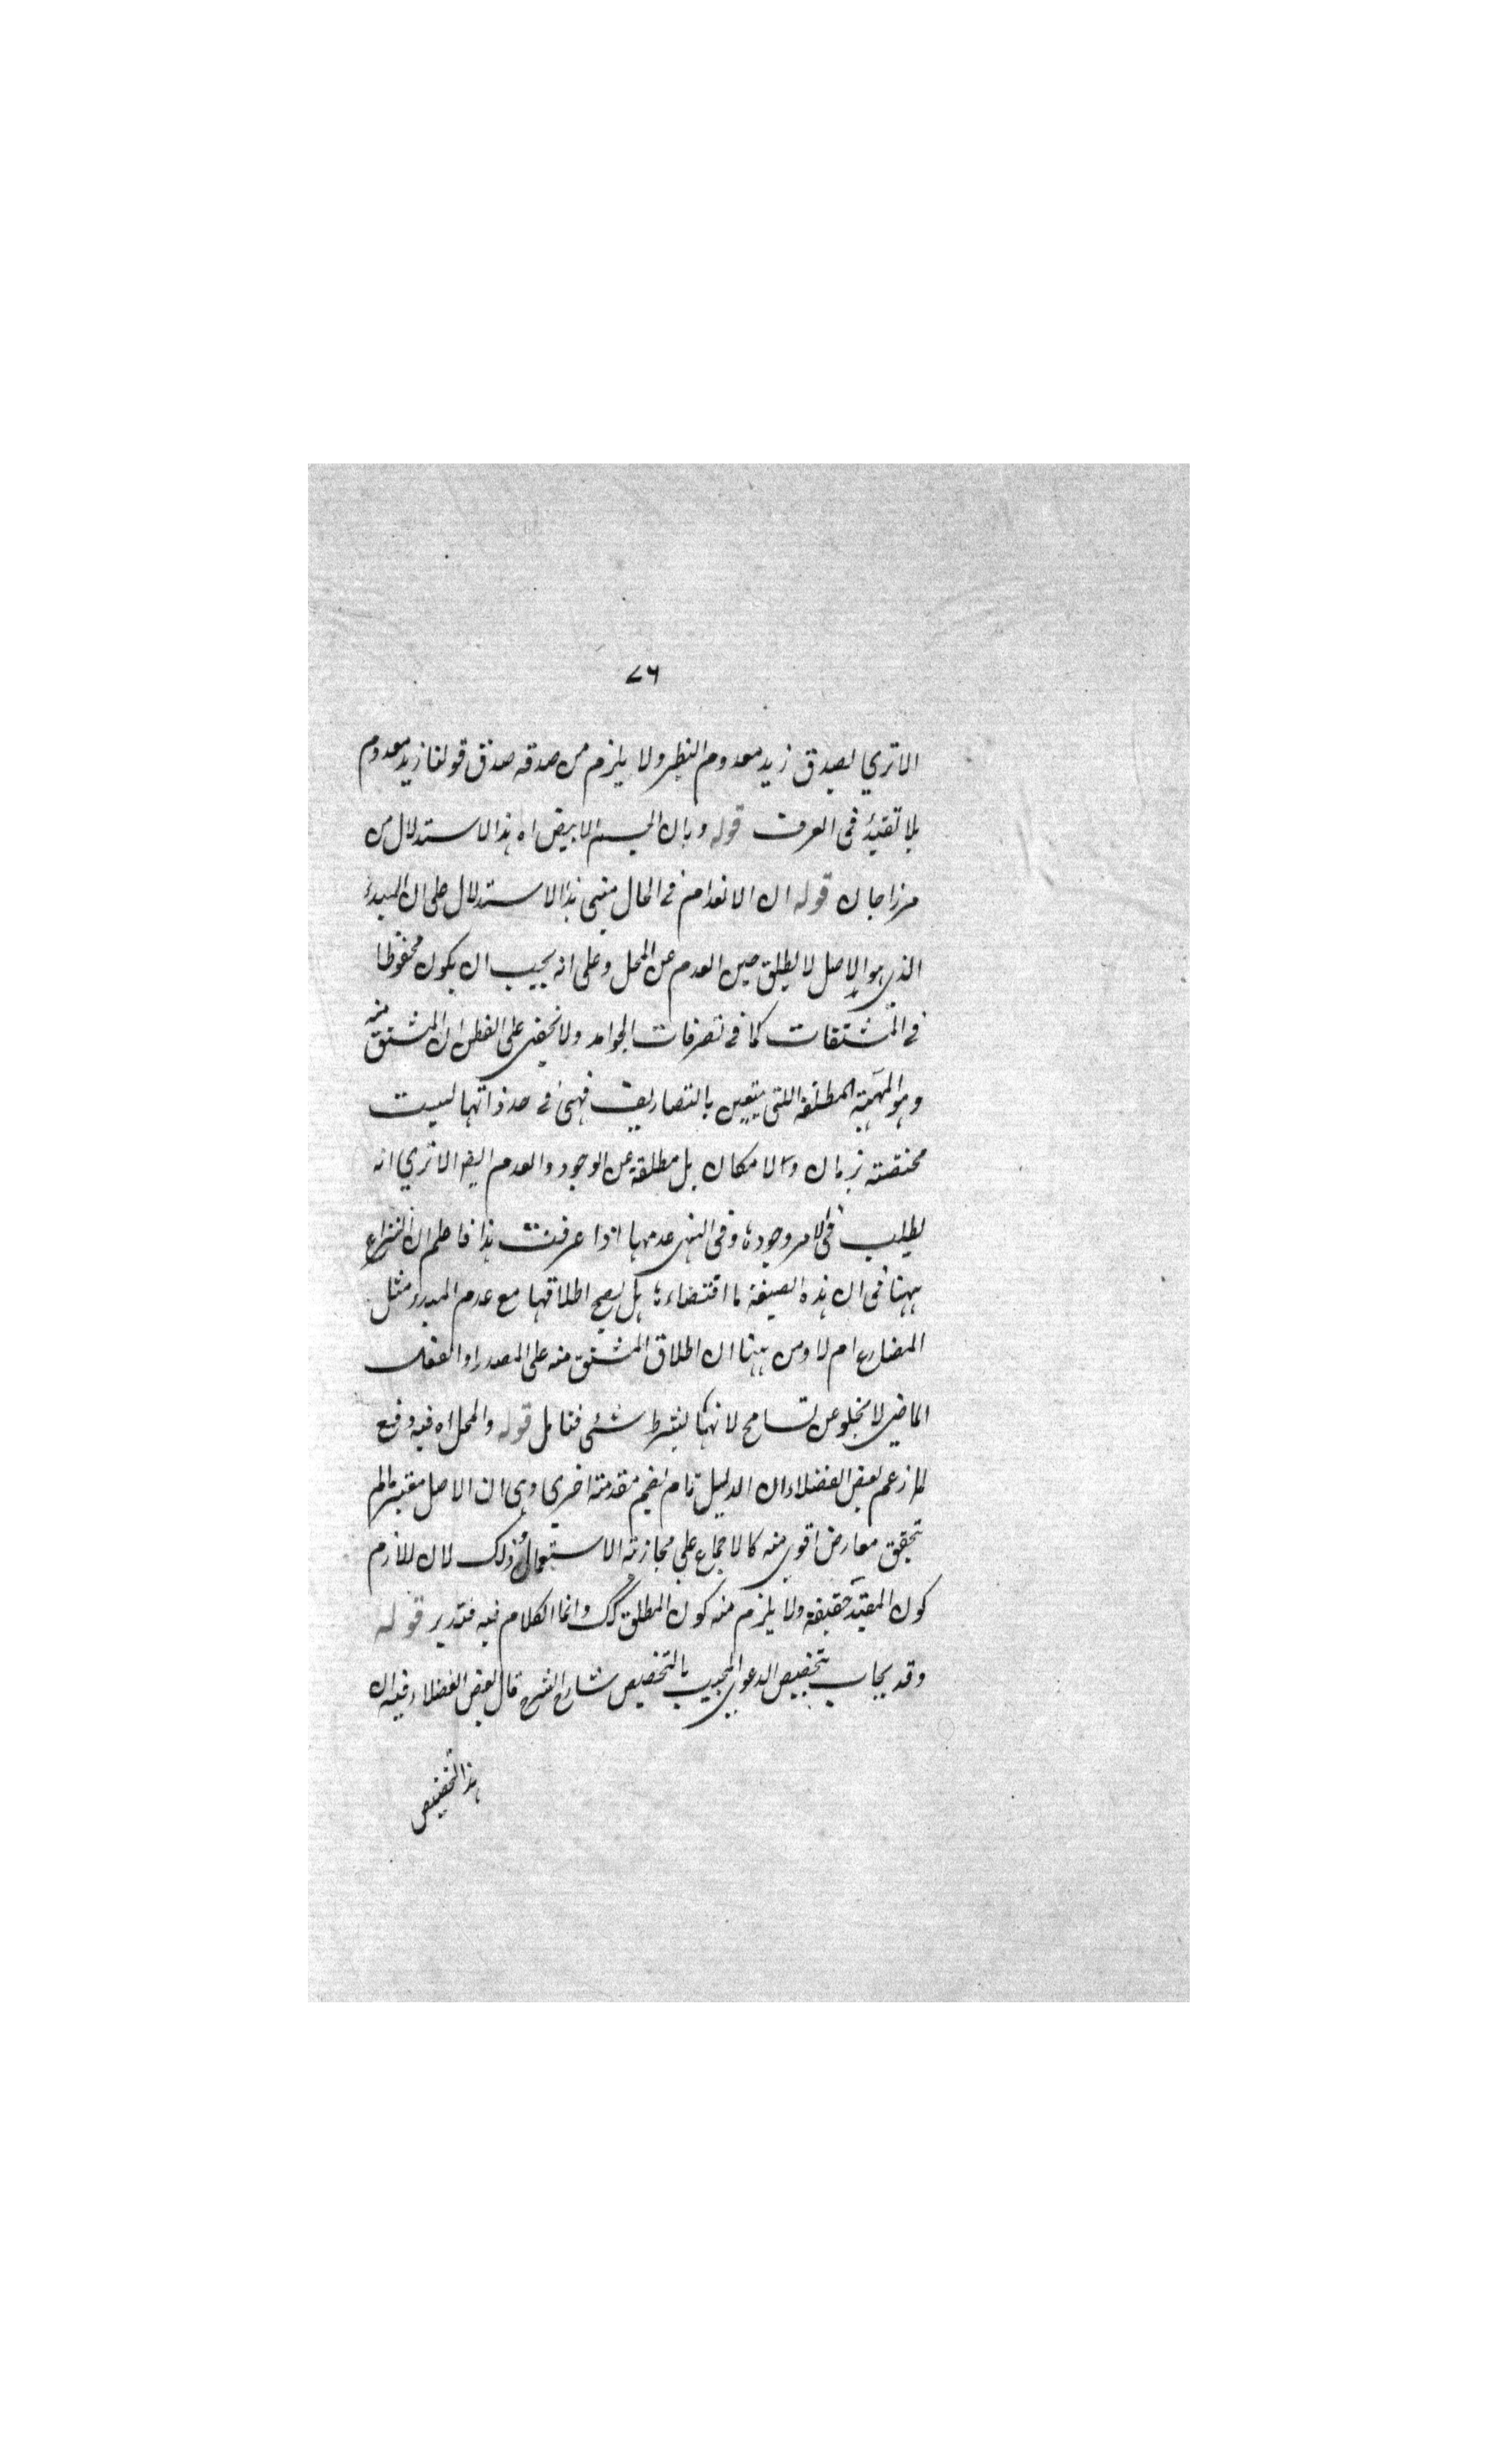 ٧٦
الا ترى يصدق زيد معدوم النظير ولا يلزم من صدقه صدق قولنا زيد معدوم
بلا تقييد فى العرف قوله وبان الجسم الابيض اه هذا الاستدلال من
مرزاجان قوله ان الانعدام فى الحال مبنى هذا الاستدلال على ان المبدء
الذى هو الاصل لا يطلق حين العدم عن المحل وعلى انه يجب ان يكون محفوظا
فى المشتقات كما فى تصرفات الجوامد ولا يخفى على الفطن ان المشتق منه
وهو المهية المطلقة اللتى يتعين بالتصاريف فهى فى حد ذاتها ليست
مختصة بزمان ولا مكان بل مطلقة عن الوجود والعدم ايضا الا ترى انه
يطلب فى الامر وجودها وفى النهى عدمها اذا عرفت هذا فاعلم ان النزاع
ههنا فى ان هذه الصيغة ما اقتضاءها هل يصح اطلاقها مع عدم المبدء مثل
المضارع ام لا ومن ههنا ان اطلاق المشتق منه على المصدر او الفعل
الماضى لا يخلو عن تسامح لانهما بشرط شئ فتامل قوله والمحل اه فيه دفع
لما زعم بعض الفضلاء ان الدليل تام بضم مقدمة اخرى وهى ان الاصل معتبر ما لم
يتحقق معارض اقوى منه كالاجماع على مجازية الاستعمال وذلك لان اللازم
كون المقيد حقيقة ولا يلزم منه كون المطلق كك وانما الكلام فيه فتدبر قوله
وقد يجاب بتخصيص الدعوى المجيب بالتخصيص شارح الشرح قال بعض الفضلاء فيه ان
هذا التخصيص